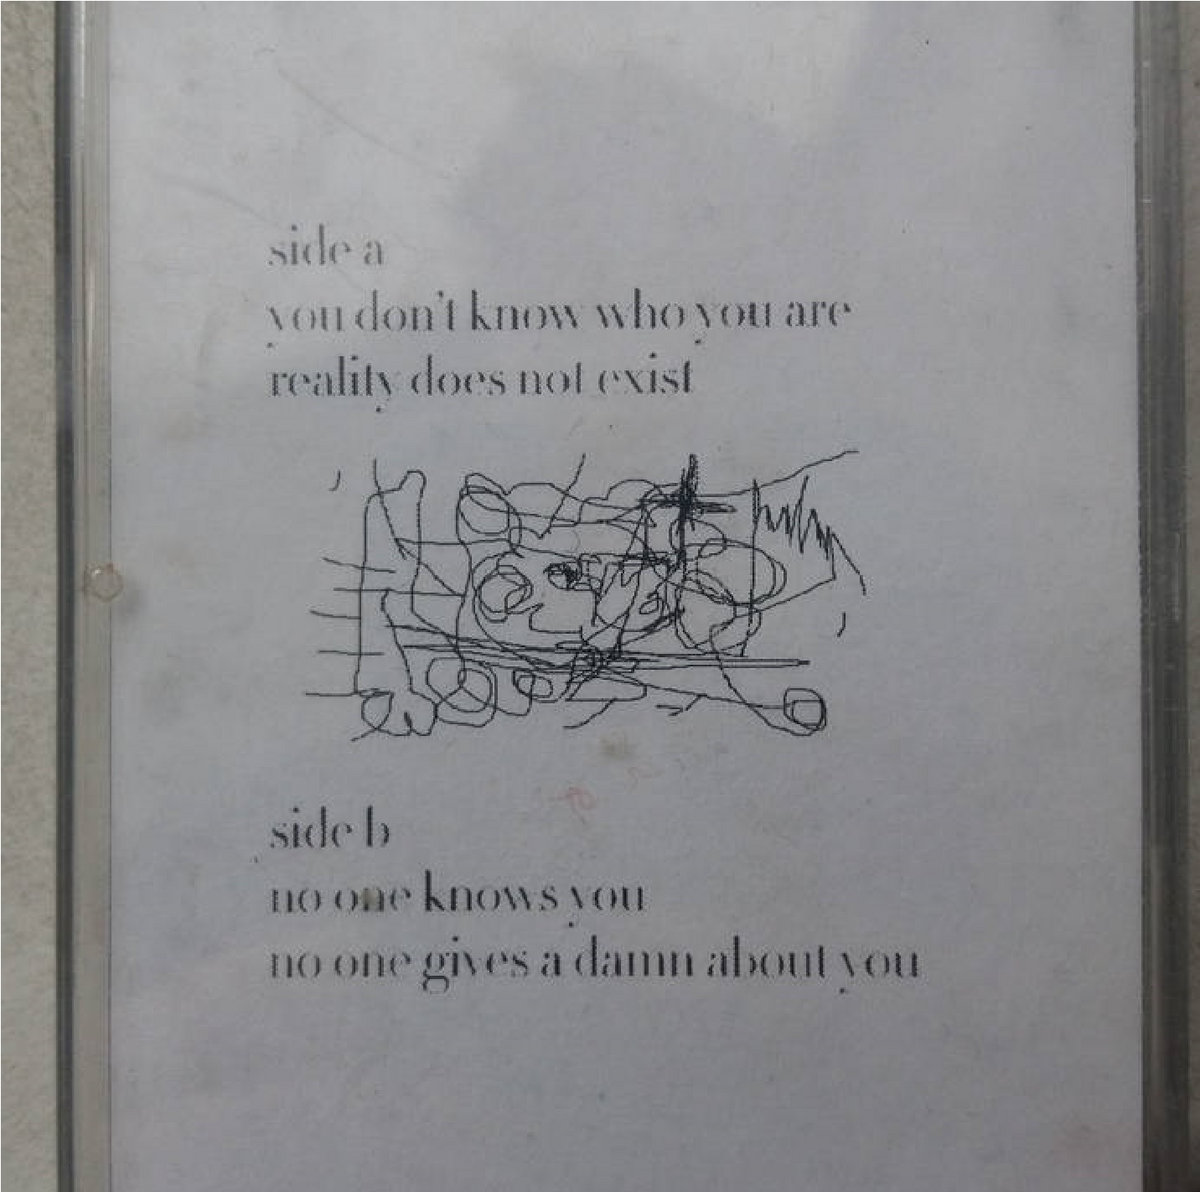 side a
you don't know who you are
reality does not exist
side b
no one knows you
no one gives a damn about you